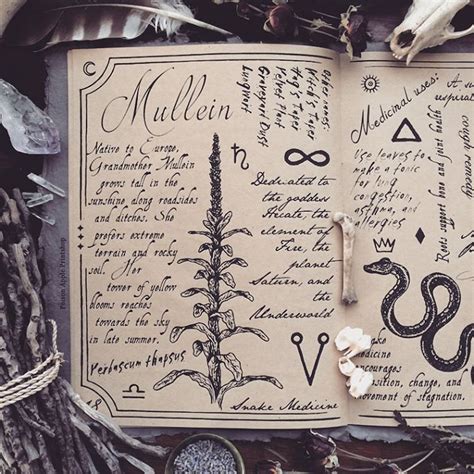 Mullein
Native to Europe,
Grandmother Mullein
grows tall in the
sunshine along roadsides
and ditches. She
prefers extreme
terrain and rocky
soil. Her
tower of yellow
blooms reaches
towards the sky
in late summer.
Verbascum thapsus
Poison Apple Printshop
Other names:
Witch's Taper
Hag's Taper
Velvet Plant
Graveyard Dust
Lungwort
Dedicated to
the goddess
Hecate, the
element of
Fire, the
planet
Saturn, and
the
Underworld
Snake Medicine
Medicinal uses:
Use leaves to
make a tonic
for lung
congestion,
asthma, and
allergies
Roots support bone and joint health
medicine
encourages
change, and
movement
of stagnation.